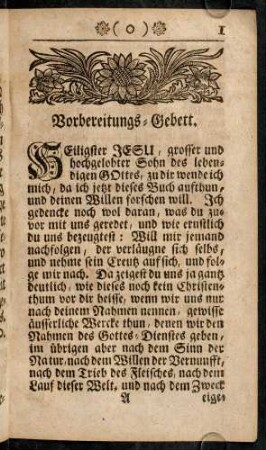 (0) 1
Vorbereitungs-Gebett.
HEiligster JESU, grosser und
hochgelobter Sohn des leben-
digen GOttes, zu dir wende ich
mich, da ich jetzt dieses Buch aufthun,
und deinen Willen forschen will. Ich
gedencke noch wol daran, was du zu-
vor mit uns geredet, und wie ernstlich
du uns bezeugtest: Will mir jemand
nachfolgen, der verläugne sich selbs,
und nehme sein Creutz auf sich, und fol-
ge mir nach. Da zeigest du uns ja gantz
deutlich, wie dieses noch kein Christen-
thum vor dir heisse, wenn wir uns nur
nach deinem Nahmen nennen, gewisse
äusserliche Wercke thun, denen wir den
Nahmen des Gottes-Dienstes geben,
im übrigen aber nach dem Sinn der
Natur, nach dem Willen der Vernunfft,
nach dem Trieb des Fleisches, nach dem
Lauf dieser Welt, und nach dem Zweck
A eige-